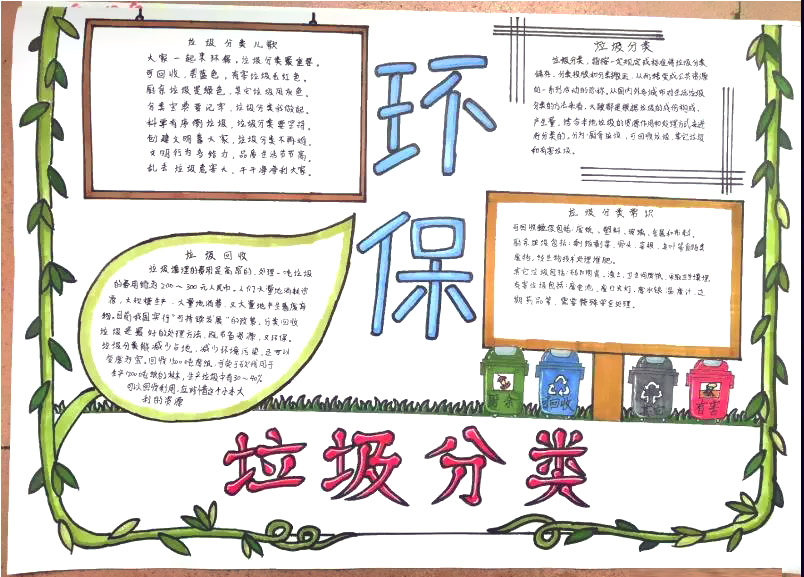 垃圾分类儿歌
大家一起来环保,垃圾分类最重要。
可回收,要蓝色,有害垃圾去红色。
厨余垃圾是绿色,其它垃圾用灰色。
分类宝要看记牢,垃圾分类我做起。
科学有序倒垃圾,垃圾分类要坚持。
创建文明靠大家,垃圾分类不再难。
文明行为多给力,品质生活节节高。
乱丢垃圾危害大,干干净净利大家。
环保
垃圾分类
垃圾分类,指按一定规定或标准将垃圾分类
储存、分类投放和分类搬运,从而转变成公共资源
的一系列活动的总称。从国内外各城市对生活垃圾
分类的方法来看,大致都是根据垃圾的成份构成、
产生量,结合本地垃圾的资源作用和处理方式来进
行分类的,分列:厨余垃圾,可回收垃圾,其它垃圾
和有害垃圾。
垃圾回收
垃圾填埋的费用是高昂的,处理一吨垃圾
的费用约为200~300元人民币。人们大量地消耗资
源,大规模生产,大量地消费,又大量地产生着废弃
物。目前我国实行"可持续发展"的政策,分类回收
垃圾是最好的处理方法,既节省资源,又环保。
垃圾分类能减少占地,减少环境污染,还可以
变废为宝。回收1500吨废纸,可免于砍伐用于
生产1200吨纸的林木,生产垃圾中有30~40%
可以回收利用,应珍惜这个小本大
利的资源
垃圾分类常识
可回收垃圾包括:废纸、塑料、玻璃、金属和布料。
厨余垃圾包括:剩饭剩菜、骨头、菜根、
废物,经生物技术处理堆肥。
有害垃圾包括:废电池、废日光灯、废水银温度计、过
期药品等,需要特殊安全处理。
厨余
可回收
其它
有害
垃圾分类